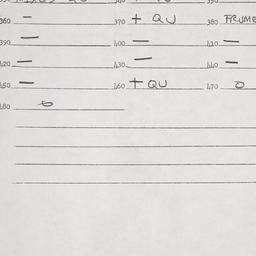 360 — 370 + QU 380 FRUME
390 — 400 — 410 —
420 — 430 — 440 —
450 — 460 + QU 470 0
480